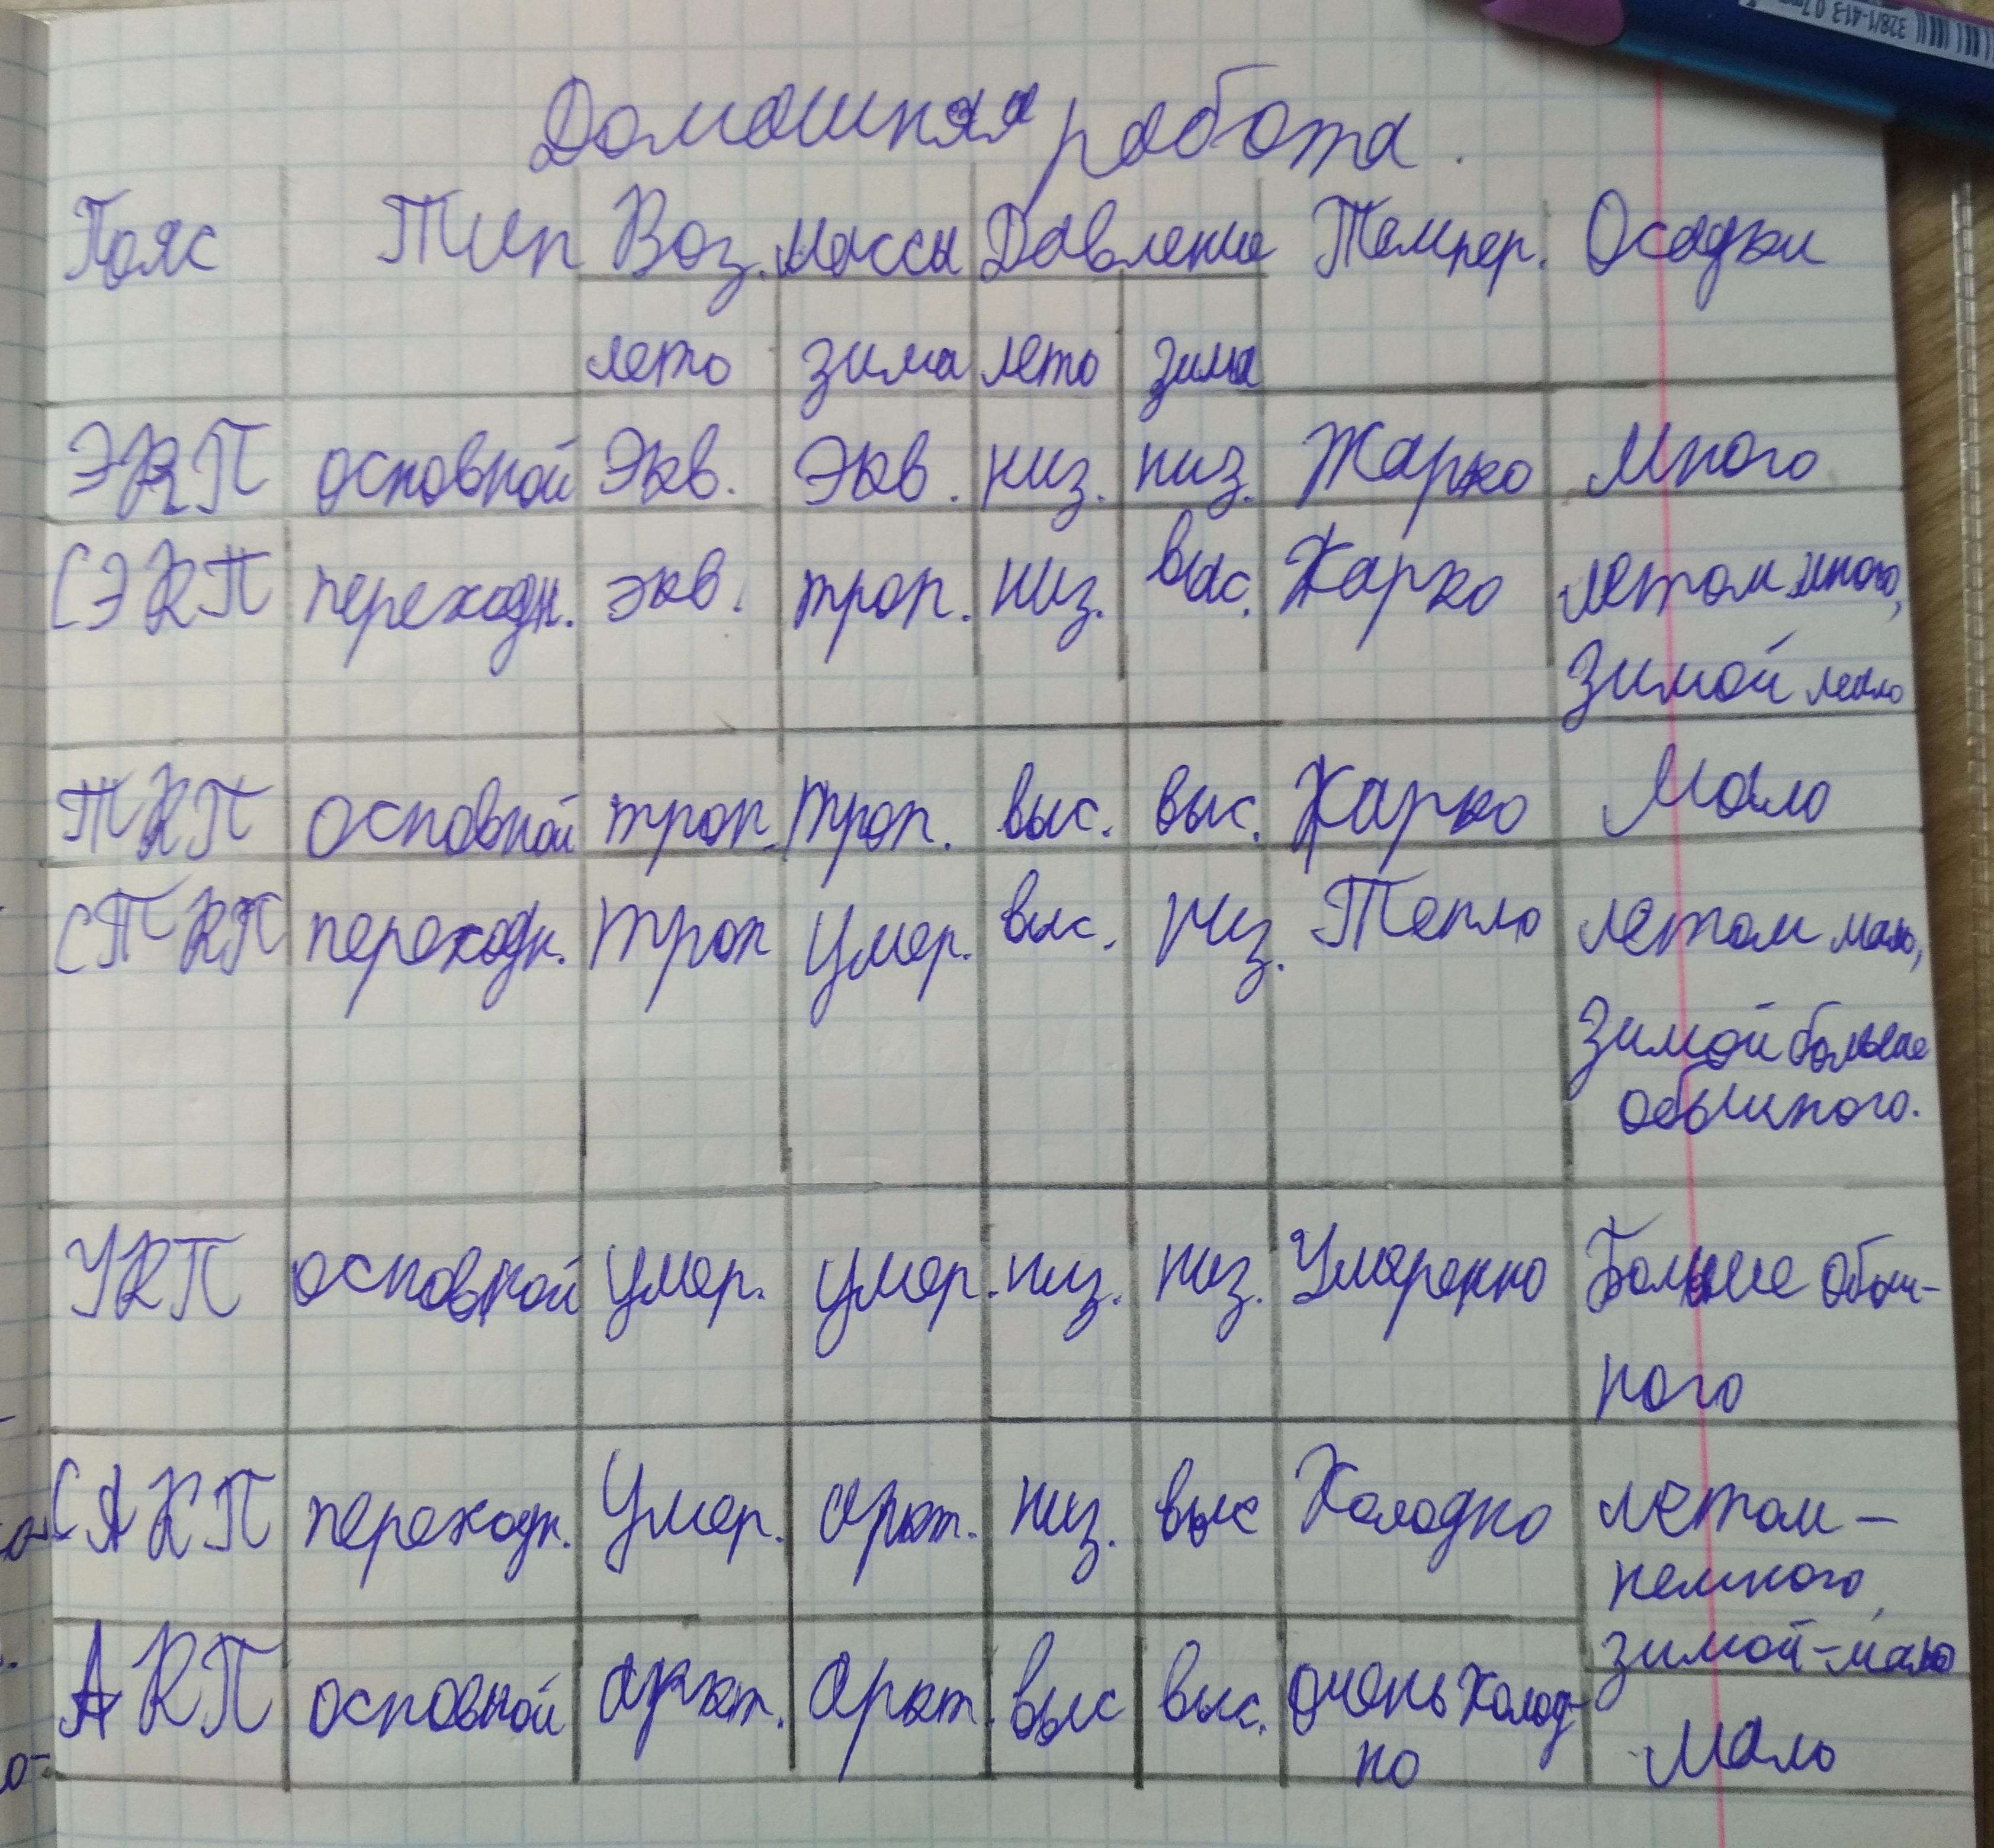 Домашняя работа.
Пояс Тип Воз. массы Давление Темпер. Осадки
лето зима лето зима
ЭКП основной Экв. Экв. низ. низ. Жарко Много
СЭКП переходн. экв. троп. низ. выс. Жарко летом много,
зимой мало
ТКП основной троп. троп. выс. выс. Жарко Мало
СТКП переходн. троп умер. выс. низ. Тепло летом мало,
зимой больше
обычного.
УКП основной умер. умер. низ. низ. Умеренно Больше обыч-
ного
САКП переходн. Умер. аркт. низ. выс Холодно летом -
немного,
зимой - мало
АКП основной аркт. аркт. выс выс. очень холод-
но
мало
328/1-413 0,7